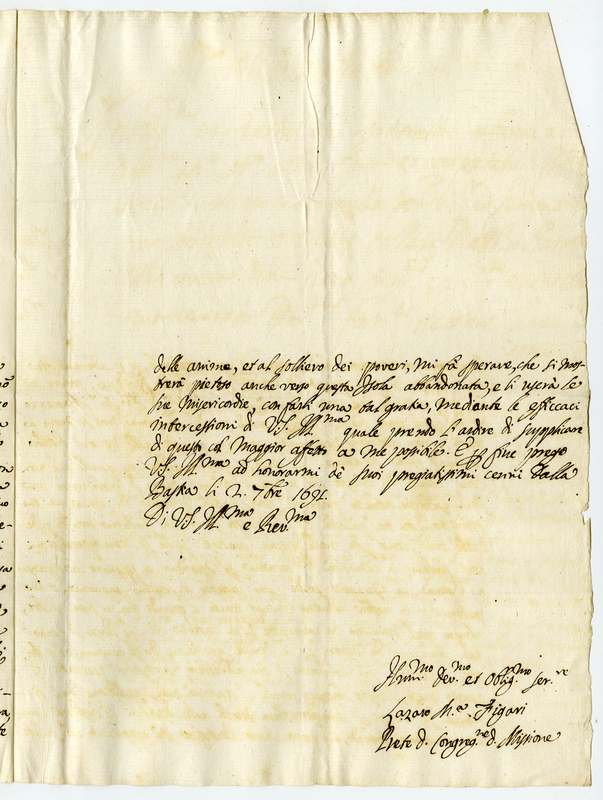 delle anime, et al sollievo dei poveri, mi fà sperare, che si mos-
trerà pietoso anche verso questa Isola abbandonata, e li userà le
sue Misericordie, con farli una tal gratia, mediante le efficaci
intercessioni di V.S. Ill.ma quale prendo l'ardire di supplicare
di questo col maggior affetto a me possibile. E p fine prego
V.S. Ill.ma ad honorarmi de suoi pregiatissimi cenni dalla
Bastia li 2. 7bre 1691.
Di V.S. Ill.ma e Rev.ma
Hum.mo dev.mo et Oblig.mo ser.re
Lazaro M.a Figari
Prete d. Congreg.ne d. Missione